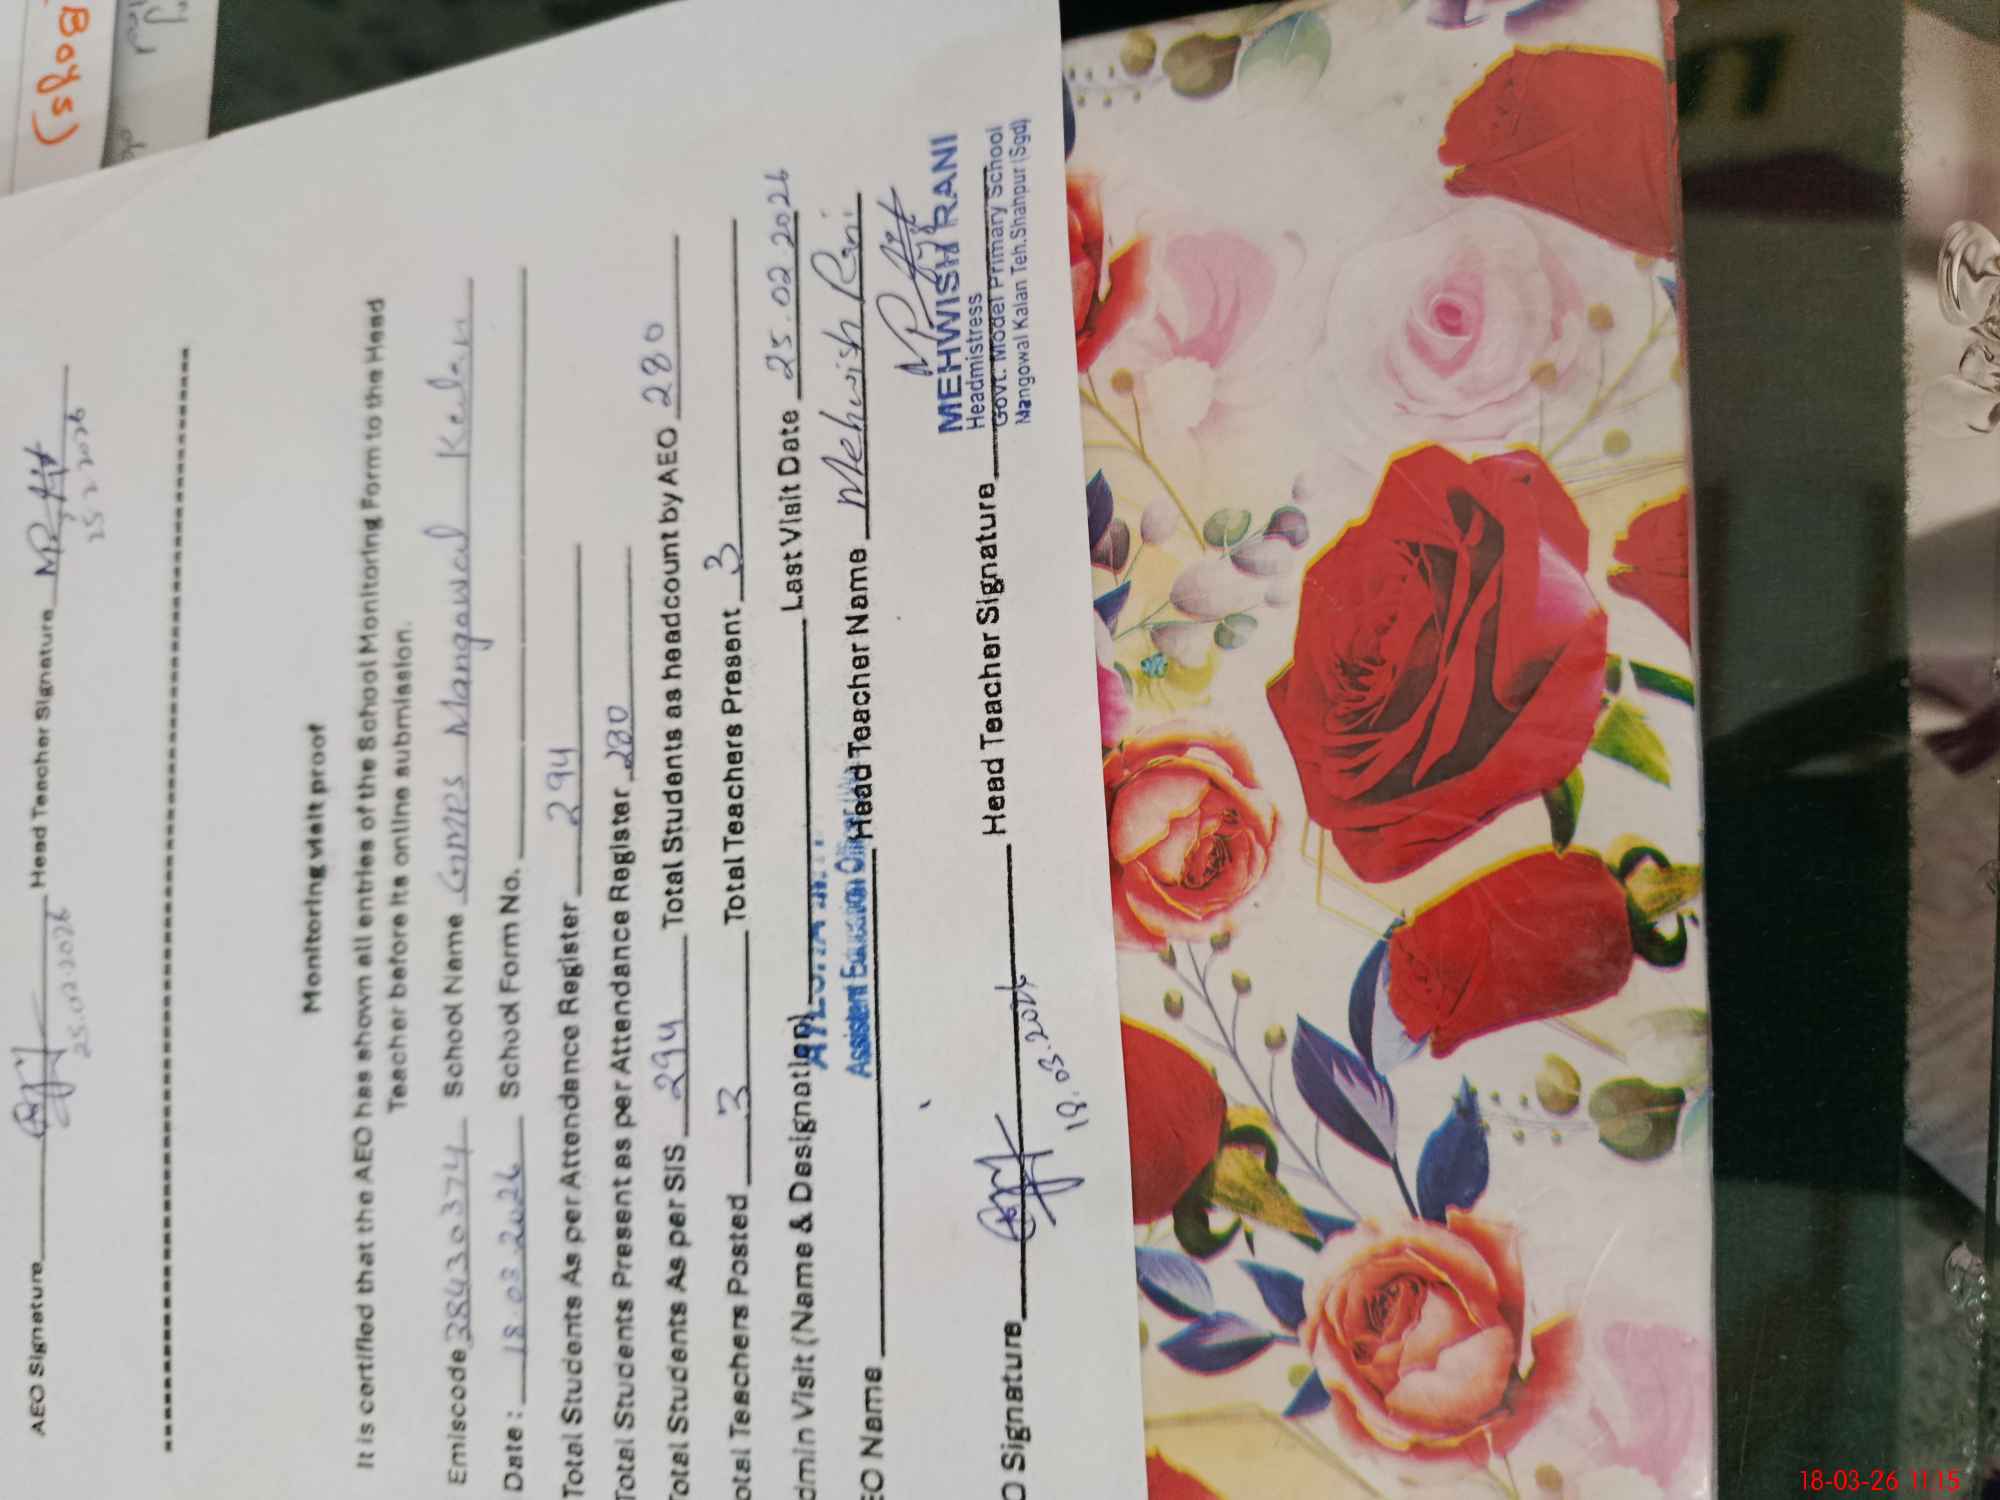 Boys)
AEO Signature 25.02.2026 Head Teacher Signature 25.2.2026
Monitoring visit proof
It is certified that the AEO has shown all entries of the School Monitoring Form to the Head
Teacher before its online submission.
Emiscode 38430374 School Name GMPS Mangowal Kalan
Date : 18.03.2026 School Form No.
Total Students As per Attendance Register 294
Total Students Present as per Attendance Register 280
Total Students As per SIS 294 Total Students as headcount by AEO 280
otal Teachers Posted 3 Total Teachers Present 3
dmin Visit (Name & Designation) Last Visit Date 25.02.2026
EO Name Assistent Education Head Teacher Name Mehwish Rani
O Signature 18.03.2026 Head Teacher Signature
MEHWISH RANI
Headmistress
Govt. Model Primary School
Mangowal Kalan Teh.Shahpur (Sgd)
18-03-26 11:15